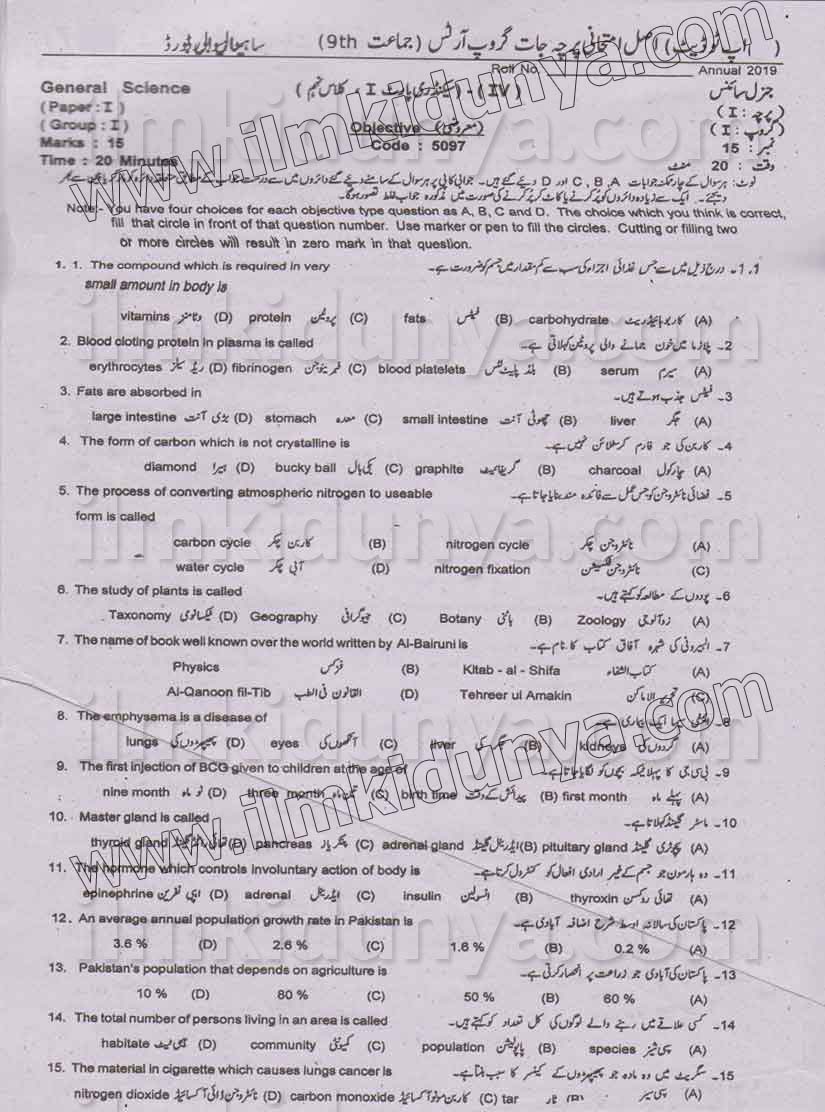 (اپ ٹو ڈیٹ) اصل امتحانی پرچہ جات گروپ آرٹس (جماعت 9th) ساہیوال بورڈ
Roll No. Annual 2019
General Science (IV) - (سیکنڈری پارٹ I ، کلاس نہم) جنرل سائنس
(Paper : I) پرچہ : I)
(Group : I) Objective (معروضی) گروپ : I)
Marks : 15 Code : 5097 نمبر : 15
Time : 20 Minutes وقت : 20 منٹ
نوٹ: ہر سوال کے چار ممکنہ جوابات A ، B ، C اور D دیئے گئے ہیں۔ جوابی کاپی پر ہر سوال کے سامنے دیئے گئے دائروں میں سے درست جواب کے مطابق متعلقہ دائرہ کو مارکر یا پین سے بھر
دیجئے۔ ایک سے زیادہ دائروں کو پُر کرنے یا کاٹ کر پُر کرنے کی صورت میں مذکورہ جواب غلط تصور ہوگا۔
Note:- You have four choices for each objective type question as A, B, C and D. The choice which you think is correct,
fill that circle in front of that question number. Use marker or pen to fill the circles. Cutting or filling two
or more circles will result in zero mark in that question.
1. 1. The compound which is required in very 1.1۔ درج ذیل میں سے جس غذائی اجزاء کی سب سے کم مقدار میں جسم کو ضرورت ہے۔
small amount in body is
vitamins وٹامنز (D) protein پروٹین (C) fats فیٹس (B) carbohydrate کاربوہائیڈریٹ (A)
2. Blood cloting protein in plasma is called 2۔ پلازما میں خون جمانے والی پروٹین کہلاتی ہے۔
erythrocytes ریڈ سیلز (D) fibrinogen فبرینوجن (C) blood platelets بلڈ پلیٹلٹس (B) serum سیرم (A)
3. Fats are absorbed in 3۔ فیٹس جذب ہوتے ہیں۔
large intestine بڑی آنت (D) stomach معدہ (C) small intestine چھوٹی آنت (B) liver جگر (A)
4. The form of carbon which is not crystalline is 4۔ کاربن کی جو فارم کرسٹلائن نہیں ہے۔
diamond ہیرا (D) bucky ball بکی بال (C) graphite گریفائیٹ (B) charcoal چارکول (A)
5. The process of converting atmospheric nitrogen to useable 5۔ فضائی نائٹروجن کو جس عمل سے فائدہ مند بنایا جاتا ہے۔
form is called
carbon cycle کاربن چکر (B) nitrogen cycle نائٹروجن چکر (A)
water cycle آبی چکر (D) nitrogen fixation نائٹروجن فکسیشن (C)
6. The study of plants is called 6۔ پودوں کے مطالعہ کو کہتے ہیں۔
Taxonomy ٹیکسانومی (D) Geography جیوگرافی (C) Botany باٹنی (B) Zoology زوآلوجی (A)
7. The name of book well known over the world written by Al-Bairuni is 7۔ البیرونی کی شہرہ آفاق کتاب کا نام ہے۔
Physics فزکس (B) Kitab - al - Shifa کتاب الشفاء (A)
Al-Qanoon fil-Tib القانون فی الطب (D) Tehreer ul Amakin تحریر الاماکن (C)
8. The emphysema is a disease of 8۔ ایمفی سیما ایک بیماری ہے۔
lungs پھیپھڑوں کی (D) eyes آنکھوں کی (C) liver جگر کی (B) kidneys گردوں کی (A)
9. The first injection of BCG given to children at the age of 9۔ بی سی جی کا پہلا ٹیکہ بچوں کو لگایا جاتا ہے۔
nine month نو ماہ (D) three month تین ماہ (C) birth time پیدائش کے وقت (B) first month پہلے ماہ (A)
10. Master gland is called 10۔ ماسٹر گلینڈ کہلاتا ہے۔
thyroid gland تھائی رائڈ گلینڈ (D) pancreas پنکریاز (C) adrenal gland ایڈرینل گلینڈ (B) pituitary gland پچوٹری گلینڈ (A)
11. The hormone which controls involuntary action of body is 11۔ وہ ہارمون جو جسم کے غیر ارادی افعال کو کنٹرول کرتا ہے۔
epinephrine ایپی نفرین (D) adrenal ایڈرینل (C) insulin انسولین (B) thyroxin تھائی روکسن (A)
12. An average annual population growth rate in Pakistan is 12۔ پاکستان کی سالانہ اوسط شرح اضافہ آبادی ہے۔
3.6 % (D) 2.6 % (C) 1.6 % (B) 0.2 % (A)
13. Pakistan's population that depends on agriculture is 13۔ پاکستان کی آبادی جو زراعت پر انحصار کرتی ہے۔
10 % (D) 80 % (C) 50 % (B) 60 % (A)
14. The total number of persons living in an area is called 14۔ کسی علاقے میں رہنے والے لوگوں کی کل تعداد کو کہتے ہیں۔
habitate ہیبی ٹیٹ (D) community کمیونٹی (C) population پاپولیشن (B) species سپی شیز (A)
15. The material in cigarette which causes lungs cancer is 15۔ سگریٹ میں وہ مادہ جو پھیپھڑوں کے کینسر کا سبب بنتا ہے۔
nitrogen dioxide نائٹروجن ڈائی آکسائیڈ (D) carbon monoxide کاربن مونو آکسائیڈ (C) tar ٹار (B) (A)
www.ilmkidunya.com
www.ilmkidunya.com
ilmkidunya.com
ilmkidunya.com
ilmkidunya.com
ilmkidunya.com
ilmkidunya.com